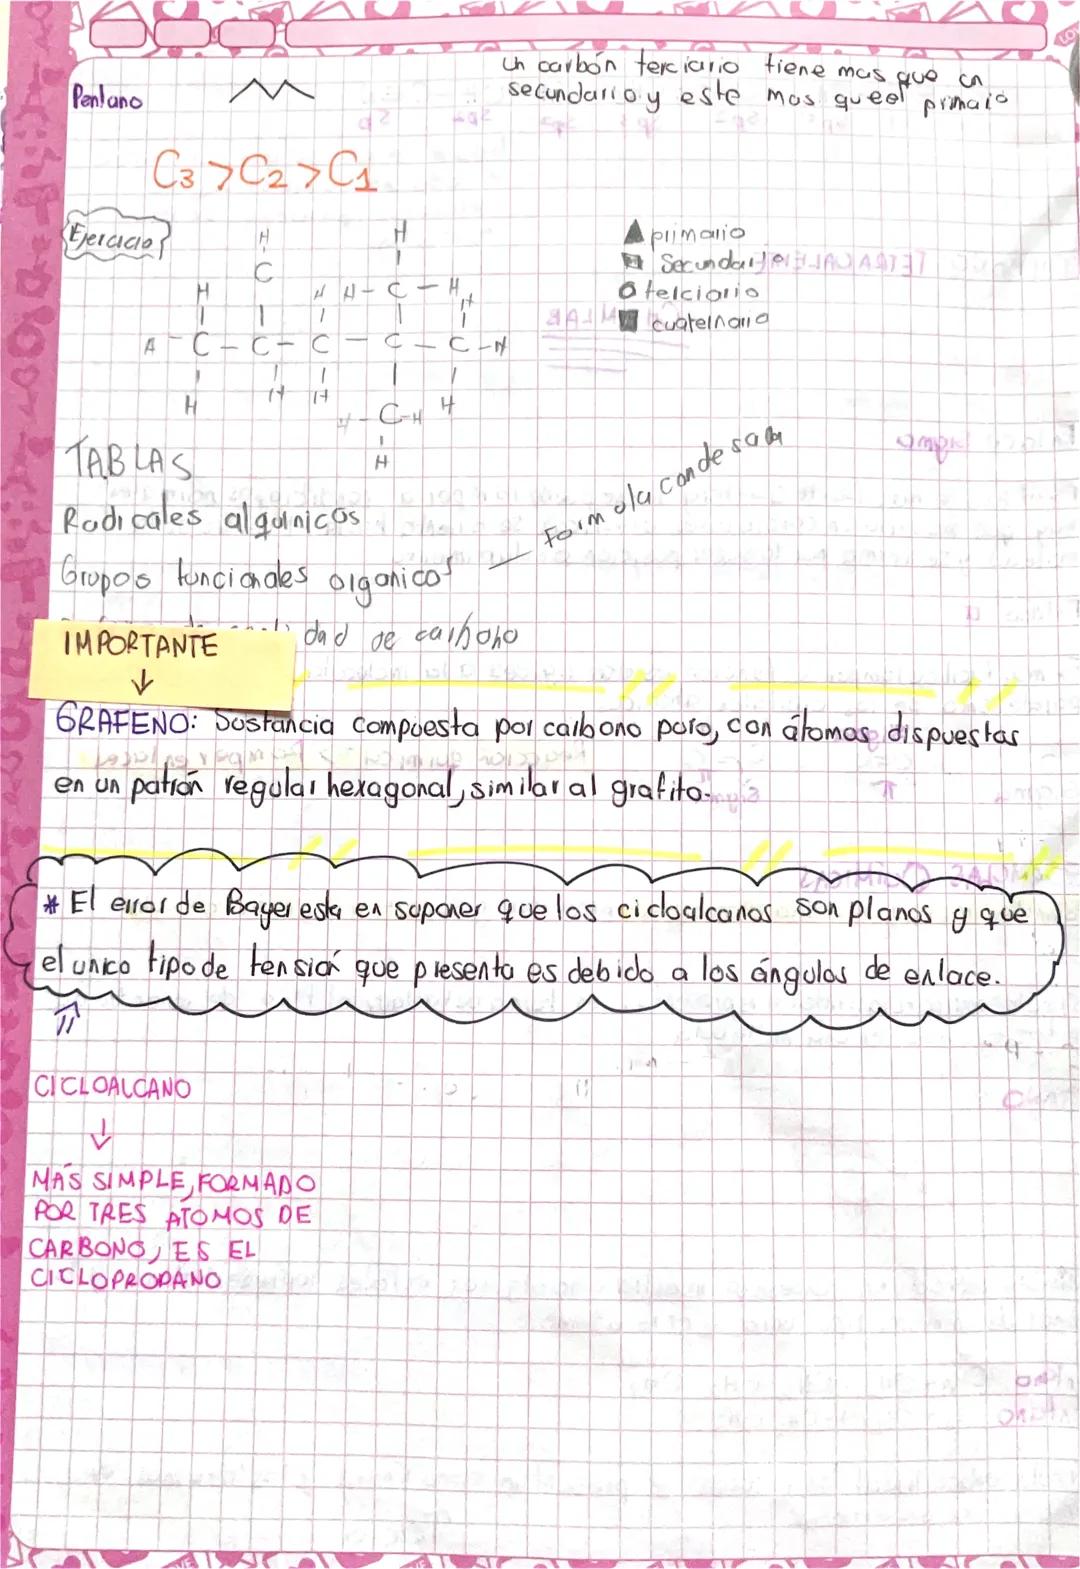 un carbón terciario tiene mas que un
secundario y este mas que el primaio
Pentano
C3 > C2 > C1
Ejercicio
H H
C H H - C - H H
H - C - C - C - C - C - H
H H H H - C - H H
H
primario
Secundario
terciario
cuaternario
TABLAS
Radicales alquinicos
Grupos funcionales organicos — Formula condesada
dad de carbono
IMPORTANTE
↓
GRAFENO: Sustancia compuesta por carbono puro, con átomos dispuestas
en un patrón regular hexagonal, similar al grafito.
* El error de Bayer esta en suponer que los cicloalcanos son planos y que
el unico tipo de tensión que presenta es debido a los ángulos de enlace.
CICLOALCANO
↓
MÁS SIMPLE, FORMADO
POR TRES ATOMOS DE
CARBONO, ES EL
CICLOPROPANO